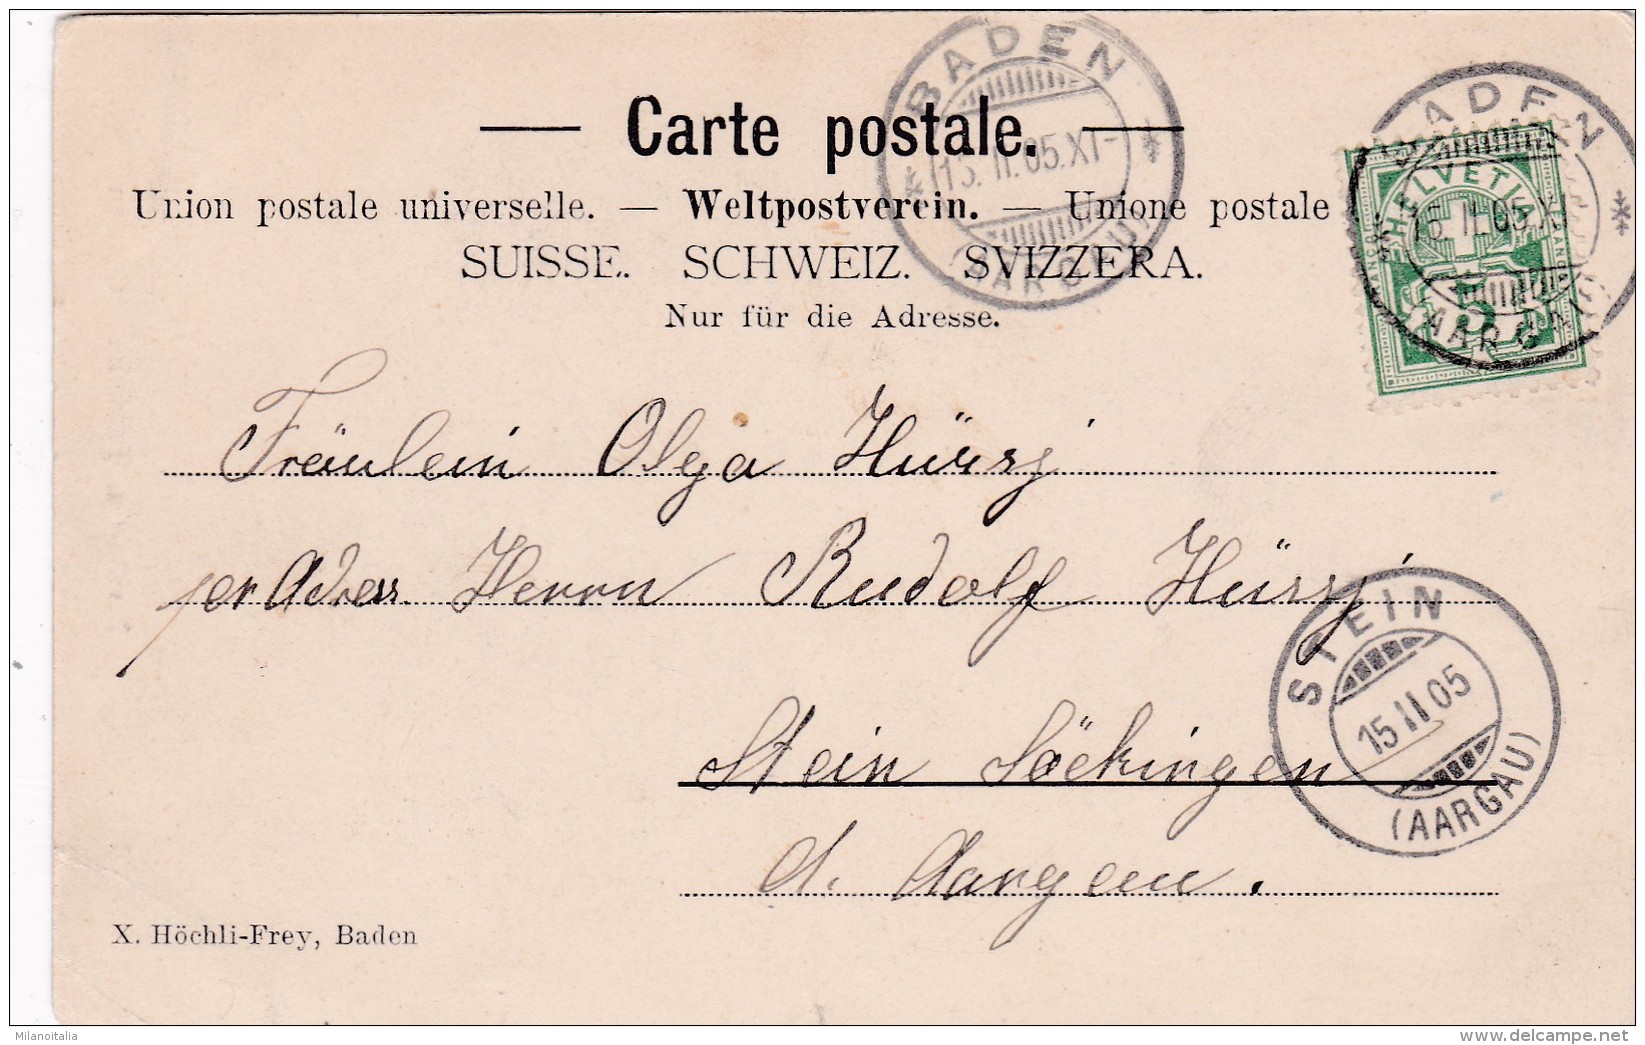 BADEN
15. II. 05. XI-
(AARGAU)
BADEN
15. II. 05. XI
AARGAU
HELVETIA
FRANCO
5
— Carte postale. —
Union postale universelle. — Weltpostverein. — Unione postale
SUISSE. SCHWEIZ. SVIZZERA.
Nur für die Adresse.
Fräulein Olga Hürzj
per Adress. Herrn Rudolf Hürzj
STEIN
15 II 05
(AARGAU)
Stein Säckingen
Ct. Aargau.
X. Höchli-Frey, Baden
Milanoitalia
delcampe.net